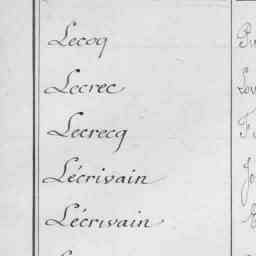 Lecoq
Lecrec
Lecrecq
Lécrivain
Lécrivain